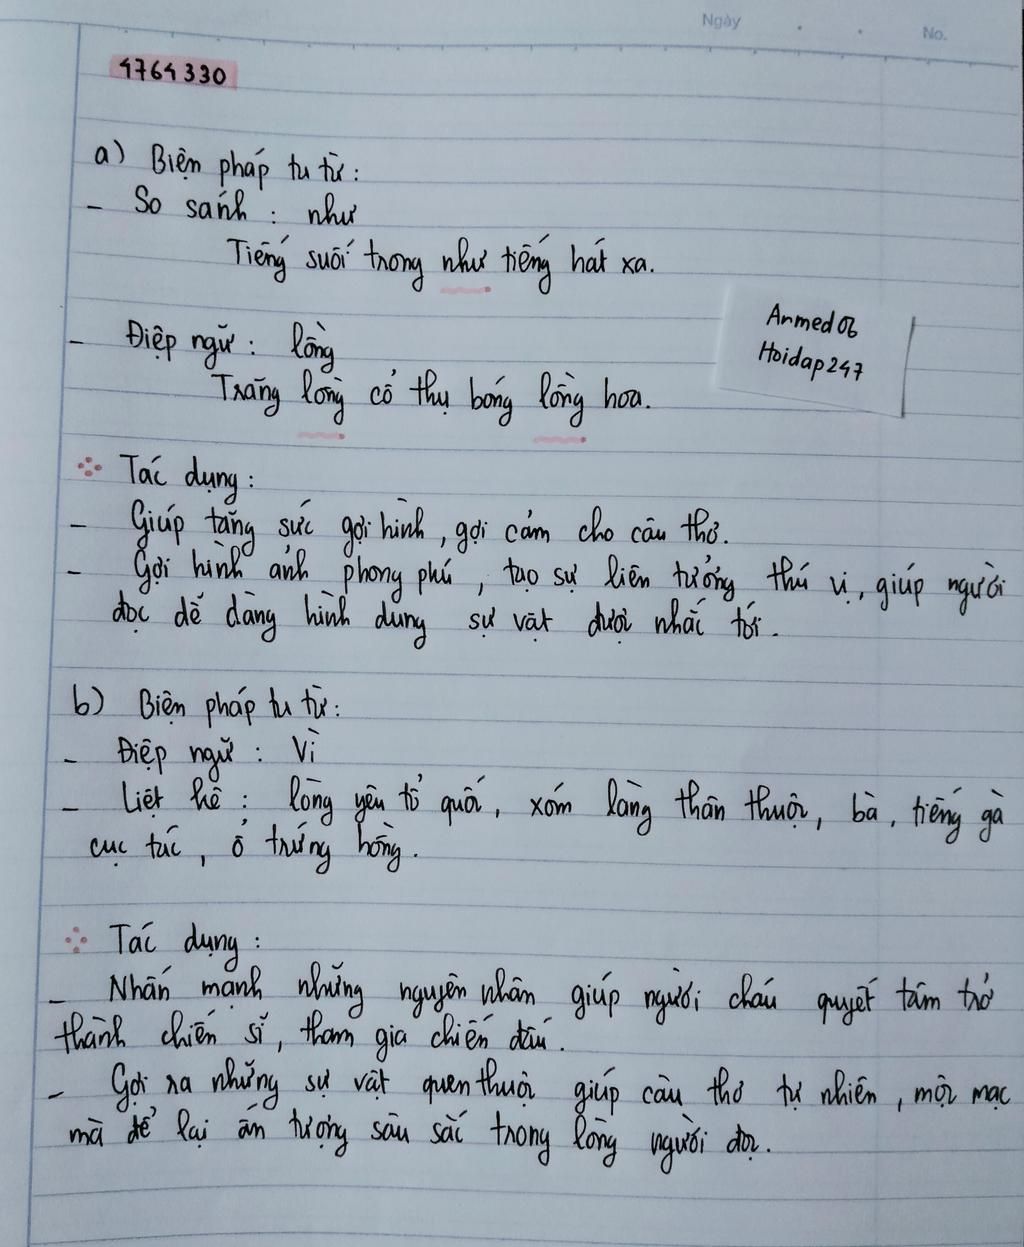 Ngày . . No.
4764330
a) Biện pháp tu từ :
- So sánh : như
Tiếng suối trong như tiếng hát xa.
- Điệp ngữ : lồng
Trăng lồng cổ thụ bóng lồng hoa.
Anmed06
Hoidap247
Tác dụng :
- Giúp tăng sức gợi hình, gợi cảm cho câu thơ.
- Gợi hình ảnh phong phú, tạo sự liên tưởng thú vị, giúp người
đọc dễ dàng hình dung sự vật được nhắc tới.
b) Biện pháp tu từ :
- Điệp ngữ : Vì
- Liệt kê : lòng yêu tổ quốc, xóm làng thân thuộc, bà, tiếng gà
cục tác, ổ trứng hồng.
Tác dụng :
- Nhấn mạnh những nguyên nhân giúp người cháu quyết tâm trở
thành chiến sĩ, tham gia chiến đấu.
- Gợi ra những sự vật quen thuộc giúp câu thơ tự nhiên, mộc mạc
mà để lại ấn tượng sâu sắc trong lòng người đọc.